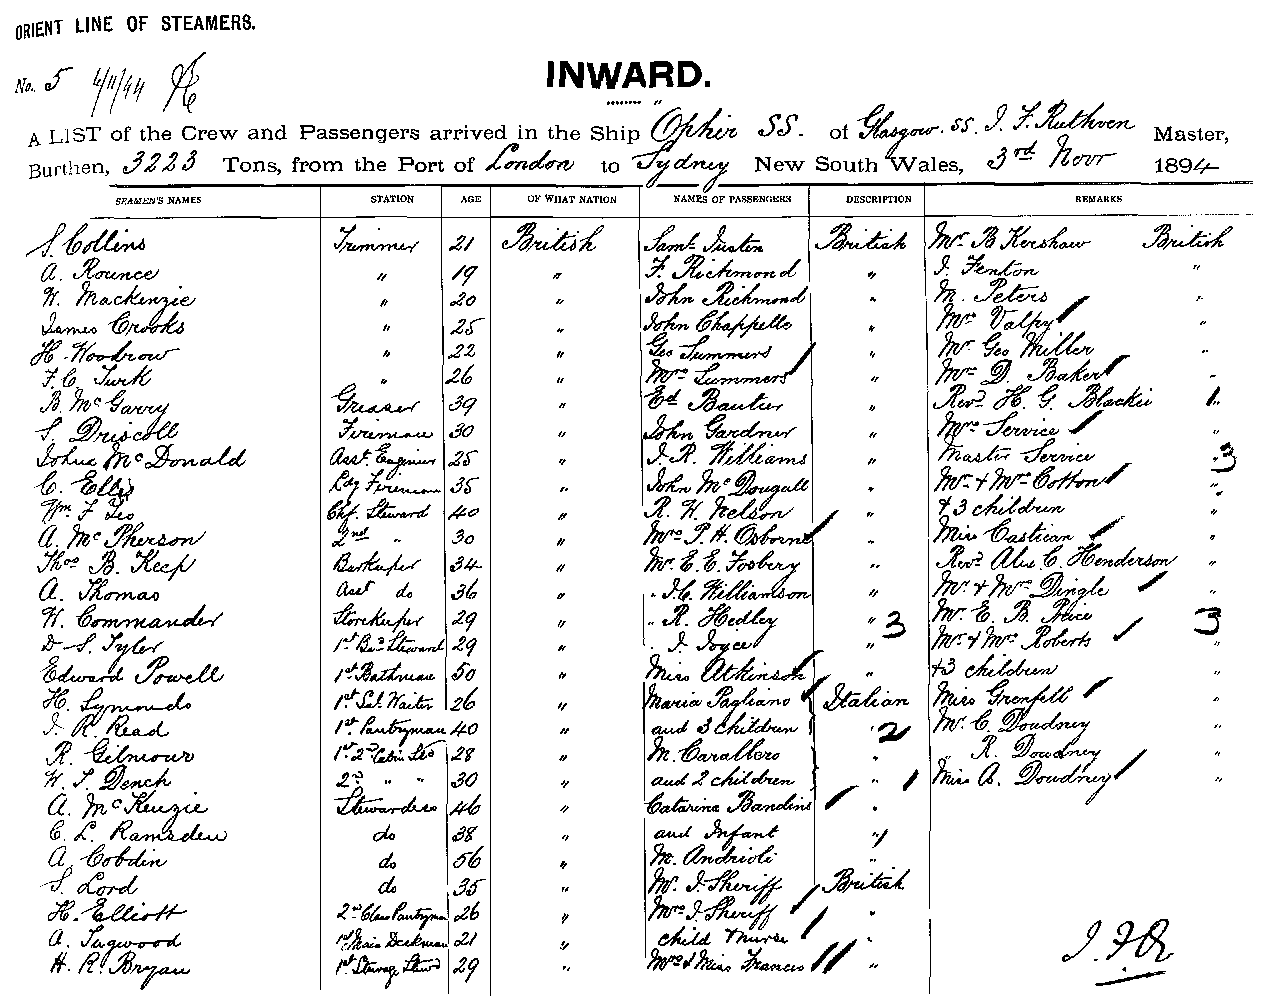 ORIENT LINE OF STEAMERS.
No. 5 6/11/94
INWARD.
A LIST of the Crew and Passengers arrived in the Ship Ophir SS. of Glasgow. SS. J. F. Ruthven Master,
Burthen, 3223 Tons, from the Port of London to Sydney New South Wales, 3rd Novr 1894
SEAMEN'S NAMES STATION AGE OF WHAT NATION NAMES OF PASSENGERS DESCRIPTION REMARKS
S. Collins Trimmer 21 British Saml Justin British Mr B Kershaw British
A. Rounce " 19 " F. Richmond " J. Fenton "
W. Mackenzie " 20 " John Richmond " M. Peters "
James Crooks " 25 " John Chappelle " Mrs Valpy "
H. Woodrow " 22 " Geo Summers " Mr Geo Miller "
F. C. Turk " 26 " Mrs Summers " Mrs D. Baker "
B. McGarry Greaser 39 " Ed Bautier " Revd H. G. Blackie "
S. Driscoll Fireman 30 " John Gardner " Mrs Service "
John McDonald Asst. Engineer 25 " J. R. Williams " Master Service " 3
C. Ellis Ldg Fireman 35 " John McDougall " Mr & Mrs Cotton "
Wm F Leo Chf. Steward 40 " R. H. Nelson " & 3 children "
A. McPherson 2nd " 30 " Mrs P. H. Osborne " Miss Castican "
Thos B. Keep Barkeeper 34 " Mr E. E. Fosbery " Revd Alex C. Henderson "
A. Thomas Asst do 36 " " J. C. Williamson " Mr & Mrs Dingle "
W. Commander Storekeeper 29 " " R. Hedley " 3 Mr E. B. Price 3
D. S. Tyler 1st Bd Steward 29 " " J. Joyce " Mr & Mrs Roberts "
Edward Powell 1st Bathman 50 " Miss Atkinson " & 3 children "
H. Symonds 1st Sal. Waiter 26 " Maria Pagliano Italian Miss Grenfell "
J. R. Read 1st Pantryman 40 " and 3 children " 2 Mr C. Doudney "
R. Gilmour 1st 2nd Cabin Std 28 " M. Carallero " " R. Doudney "
W. J. Dench 2nd " " 30 " and 2 children " Miss A. Doudney "
A. McKenzie Stewardess 46 " Catarina Bandini "
C. L. Ramsden do 38 " and Infant "
A. Cobdin do 56 " M. Andrioli "
S. Lord do 35 " Mr. J. Sheriff British
H. Elliott 2nd Class Pantryman 26 " Mrs J. Sheriff "
A. Tugwood 1st Main Deckman 21 " child & nurse "
H. R. Bryan 1st Steerage Stewd 29 " Mrs & Miss Francis "
J. F. R.